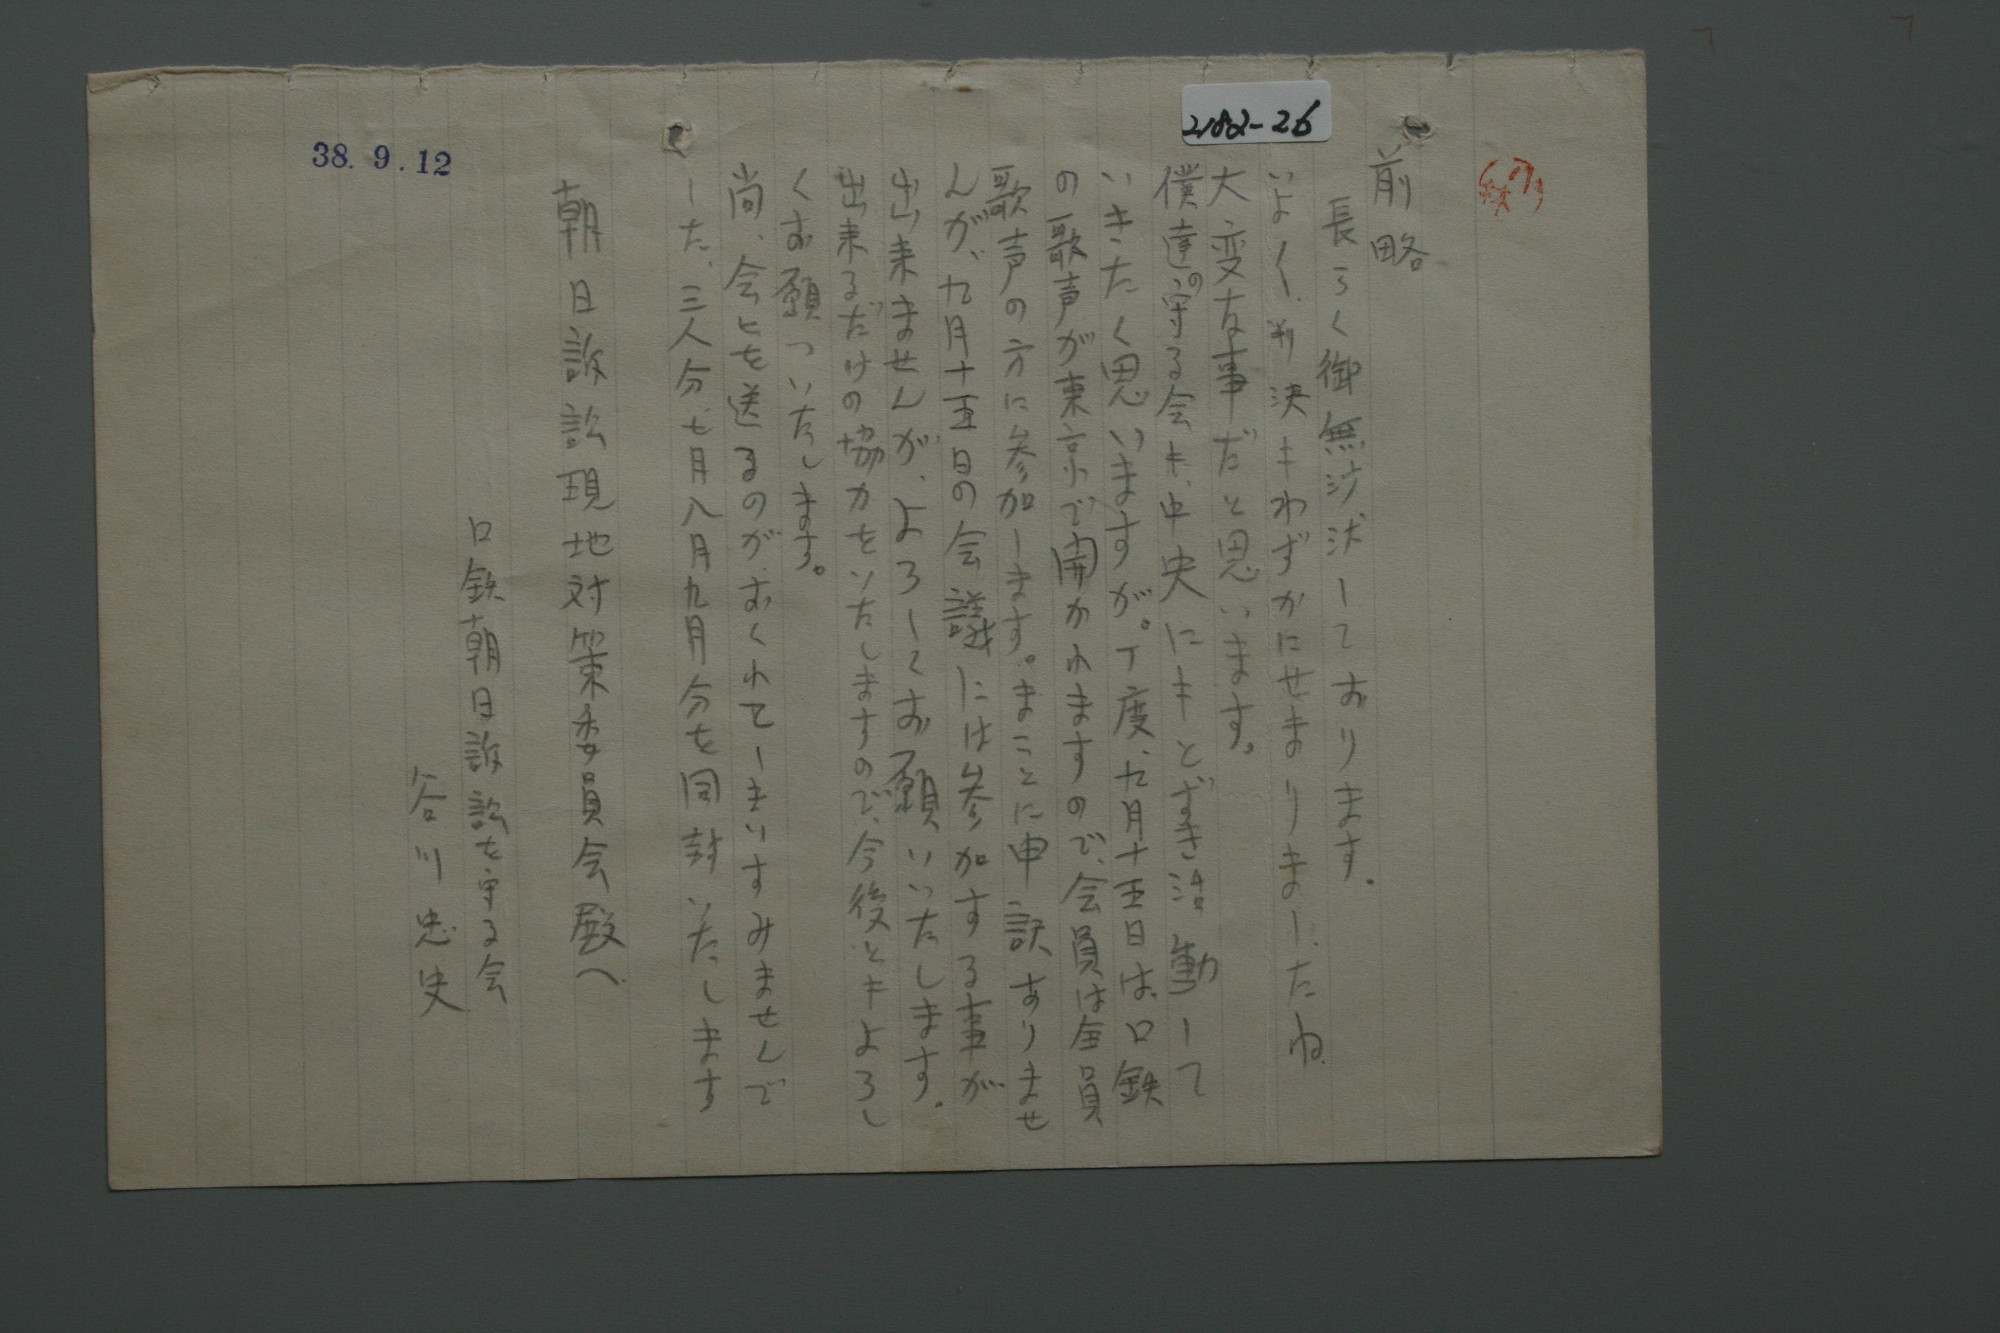 2182-26
前略
長らく御無沙汰しております。
いよ〱、判決もわずかにせまりました。ね
大変な事だと思います。
僕達の守る会も、中央にもとずき活動して
いきたく思いますが。丁度、九月十五日は、口鉄
の歌声が東京で開かれますので、会員は全員
歌声の方に参加します。まことに申訳ありませ
んが、九月十五日の会議には参加する事が
出来ませんが、よろしくお願いいたします。
出来るだけの協力をいたしますので、今後ともよろし
くお願ついたします。
尚、会ヒを送るのが、おくれてしまいすみませんで
した、三人分七月八月九月分を同封いたします
朝日訴訟現地対策委員会殿へ
口鉄朝日訴訟を守る会
谷川忠史
38.9.12